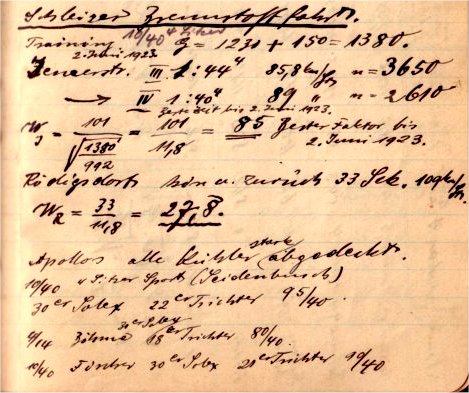 Schleizer Brennstofffahrt.
Training 10/40 4 Sitzer G = 1230 + 150 = 1380.
2. Juni 1923.
Jenaerstr. III 1:44" 85,8 km/Std n = 3650
→ IV 1:40" 89 " n = 2610
beste Zeit bis 2. Juni 1923.
W_J = 101 / √(1380/992) = 101 / 11,8 = 85 Bester Faktor bis 2. Juni 1923.
Rödigsdorf hin u. zurück 33 Sek. 109 km/St.
W_R = 33 / 11,8 = 27,8.
Apollos alle Kühler stark abgedeckt.
10/40 4 Sitzer Sport (Seidenbusch)
30er Solex 22er Trichter 95/40.
4/14 Böhme 30er Solex 18er Trichter 80/40.
10/40 Fischer 30er Solex 21er Trichter 90/40